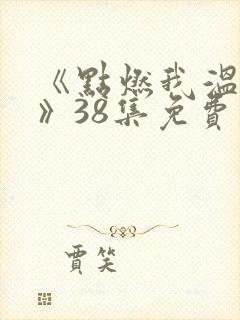 《點燃我溫
》38集免費
賈笑